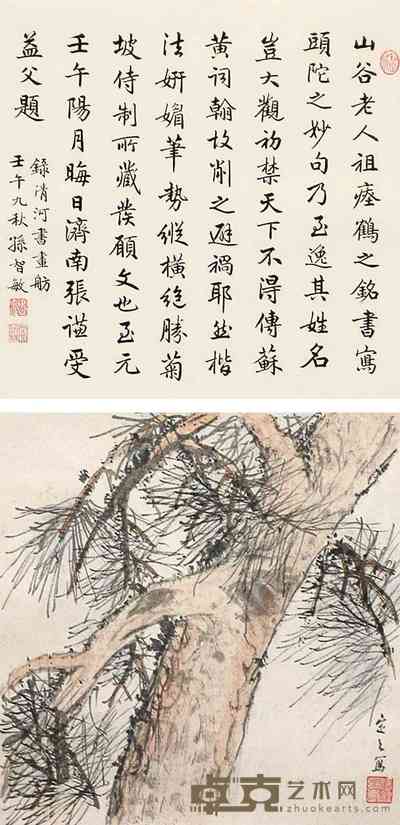 山谷老人祖瘞鶴之銘書寫
頭陀之妙句乃至逸其姓名
豈大觀初禁天下不得傳蘇
黃詞翰故削之避禍耶然楷
法妍媚筆勢縱橫絕勝菊
坡侍制所藏發願文也至元
壬午陽月晦日濟南張謙受
益父題
錄清河書畫舫
壬午九秋孫智敏
定之寫
卓克艺术网
zhuokearts.com